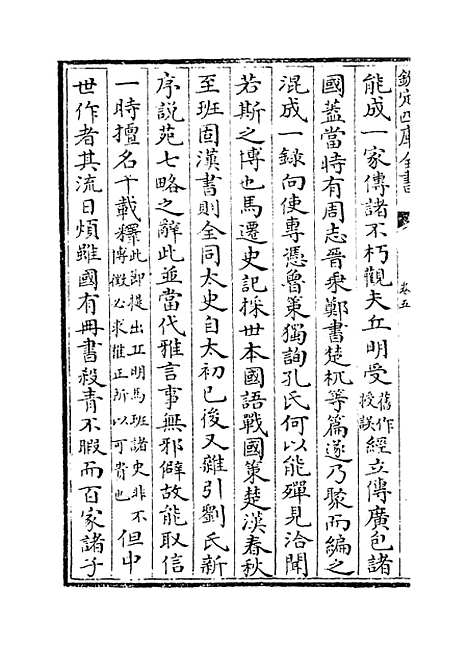 欽定四庫全書 卷五
能成一家傳諸不朽觀夫丘明受舊作授誤經立傳廣包諸
國蓋當時有周志晉乘鄭書楚杌等篇遂乃聚而編之
混成一錄向使專憑魯策獨詢孔氏何以能殫見洽聞
若斯之博也馬遷史記採世本國語戰國策楚漢春秋
至班固漢書則全同太史自太初已後又雜引劉氏新
序說苑七略之辭此並當代雅言事無邪僻故能取信
一時擅名千載釋此即提出丘明馬班諸史非不博徵必求雅正所以可貴也但中
世作者其流日煩雖國有冊書殺青不暇而百家諸子